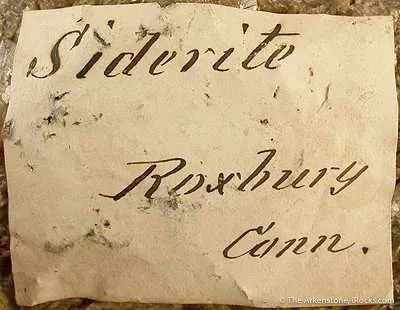 Siderite
Roxbury
Conn.
© The Arkenstone, iRocks.com